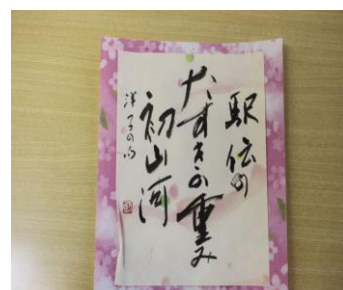 駅伝の
たすきの重み
初山河
洋子の句